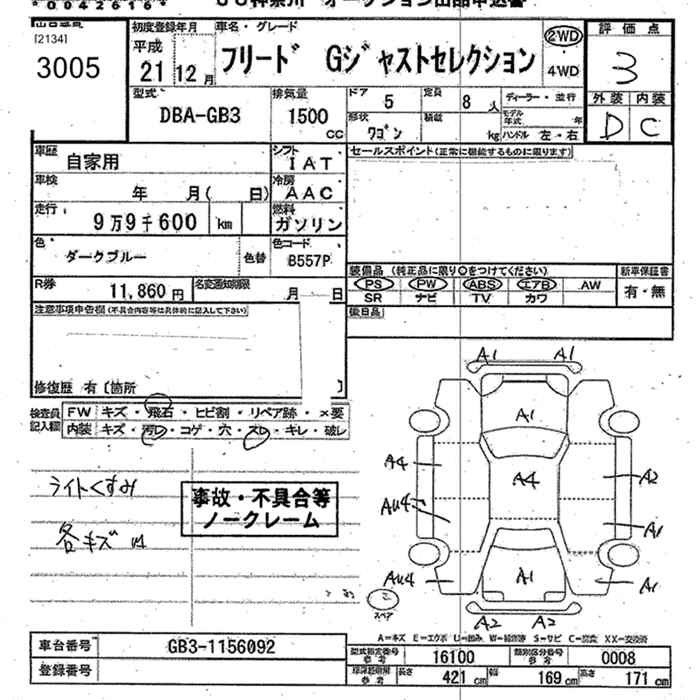 *00042616*
[2134]
3005
初度登録年月
平成
21 12月
車名・グレード
フリード Gジャストセレクション
2WD
4WD
評価点
3
外装 内装
D C
型式
DBA-GB3
排気量
1500
CC
ドア 5
定員 8 人
ディーラー・並行
形状 ワゴン
積載 kg
モデル年式 年
ハンドル 左・右
車歴 自家用
シフト IAT
セールスポイント(正常に機能するものに限ります)
車検 年 月( 日)
冷房 AAC
走行 9万9千600 km
燃料 ガソリン
色 ダークブルー
色替
色コード B557P
装備品 (純正品に限り〇をつけてください)
新車保証書
PS PW ABS エアB AW
有・無
SR ナビ TV カワ
R券 11,860円
名変通知期限 月 日
後日品
注意事項申告欄(不具合内容等は具体的に記入して下さい)
修復歴 有〔箇所 〕
検査員記入欄
FW キズ・飛石・ヒビ割・リペア跡・×要
内装 キズ・汚レ・コゲ・穴・スレ・キレ・破レ
ライトくすみ
各キズ
事故・不具合等
ノークレーム
A1 A1
A1
A4 A4 A2
AU4 A1
AU4 A1 A1
A2 A2
スペア
A=キズ E=エクボ U=凹み W=補修跡 S=サビ C=腐食 XX=交換済
車台番号 GB3-1156092
登録番号
型式指定番号 参考 16100
類別区分番号 参考 0008
長さ 421 cm 幅 169 cm 高さ 171 cm